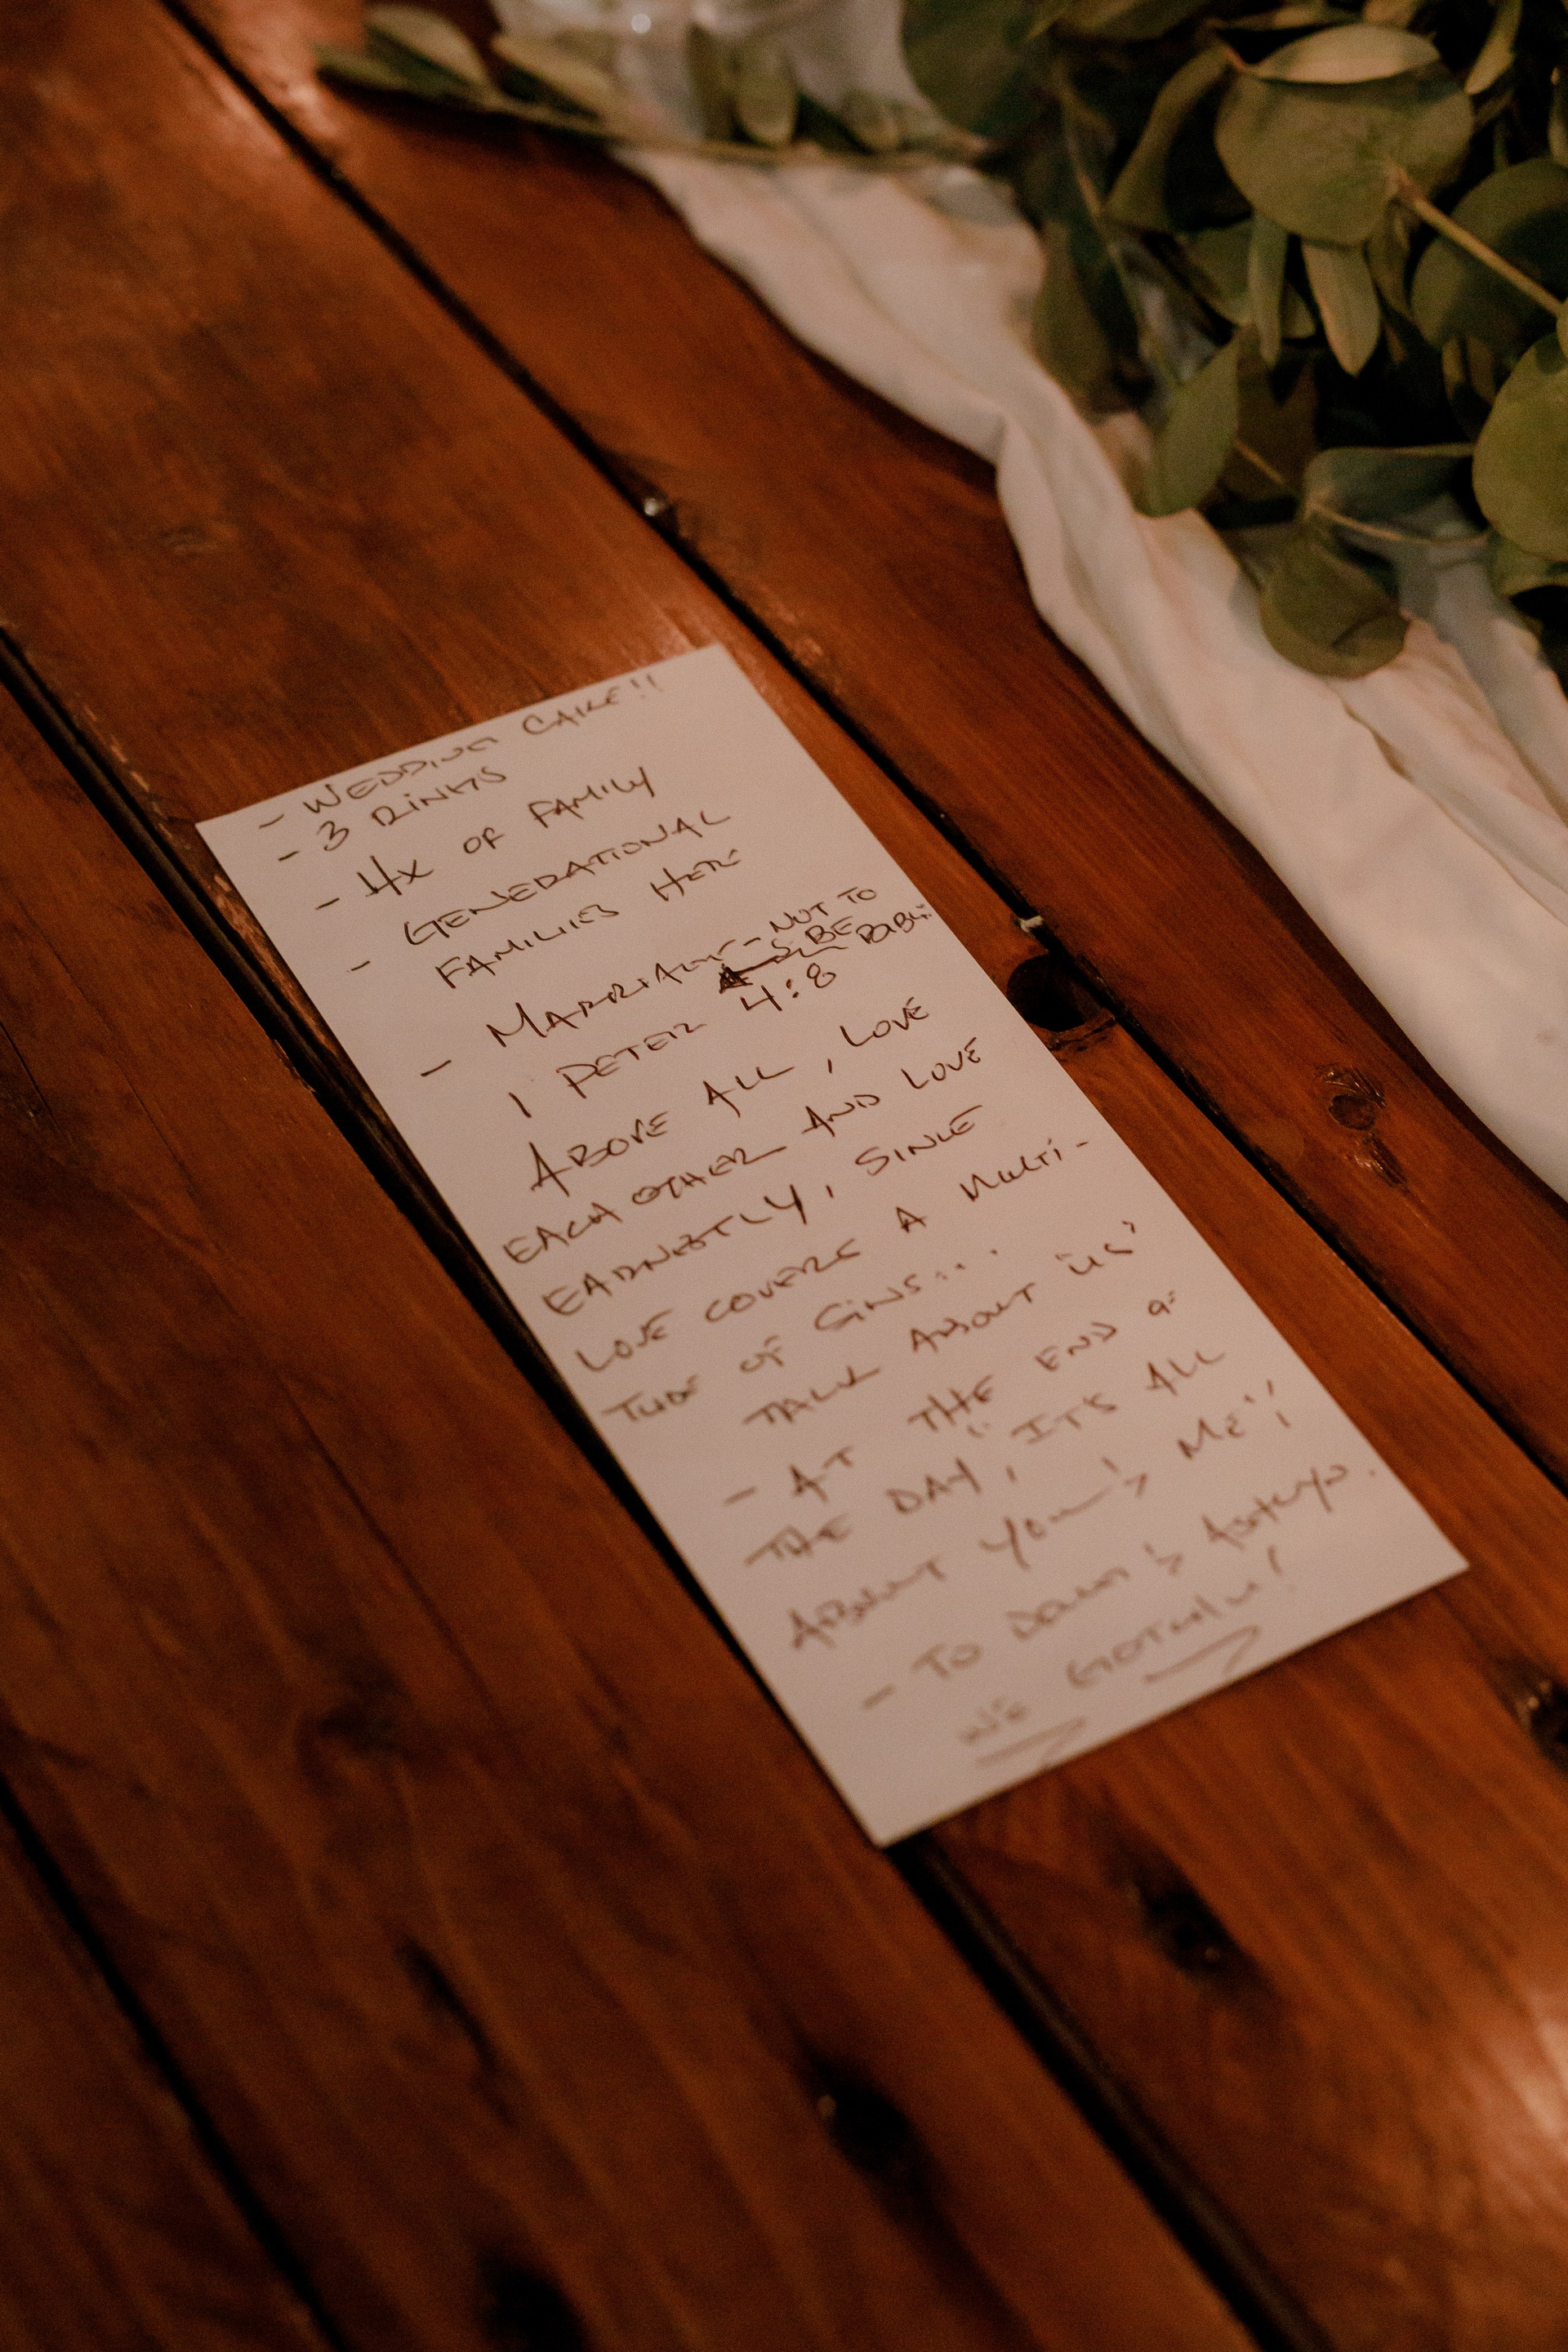 - WEDDING CAKE!!
- 3 RINGS
- 4X OF FAMILY
- GENERATIONAL
FAMILIES HERE
- MARRIAGE - NOT TO
BE
1 PETER 4:8
ABOVE ALL, LOVE
EACH OTHER AND LOVE
EARNESTLY, SINCE
LOVE COVERS A MULTI-
TUDE OF SINS...
TALK ABOUT "US"
- AT THE END OF
THE DAY, "IT'S ALL
ABOUT YOU & ME";
- TO &
WE